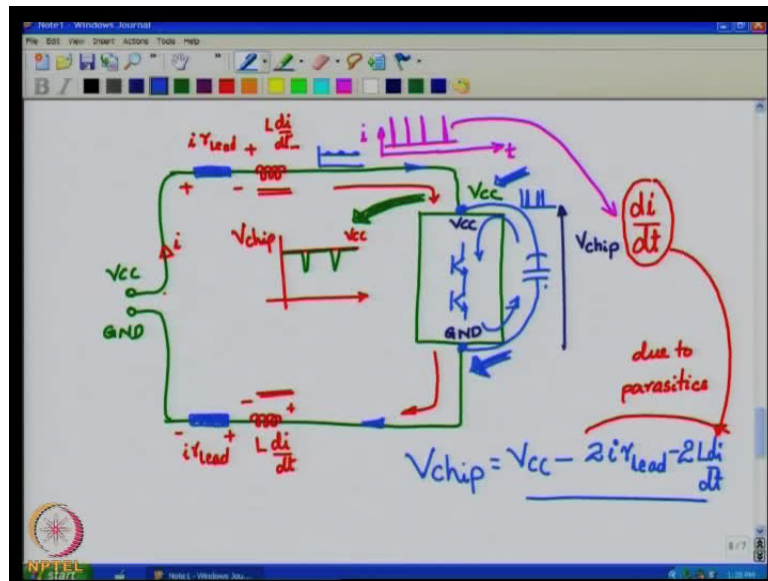 Note1 - Windows Journal
File Edit View Insert Actions Tools Help
B I
i r_lead + L di/dt
+ -
i t
VCC
i
Vchip VCC
VCC
GND
VCC
GND
Vchip
di/dt
due to parasitics
- +
- i r_lead + L di/dt
Vchip = VCC - 2 i r_lead - 2L di/dt
NPTEL
start Note1 - Windows Jou...
8/7
1:28 PM